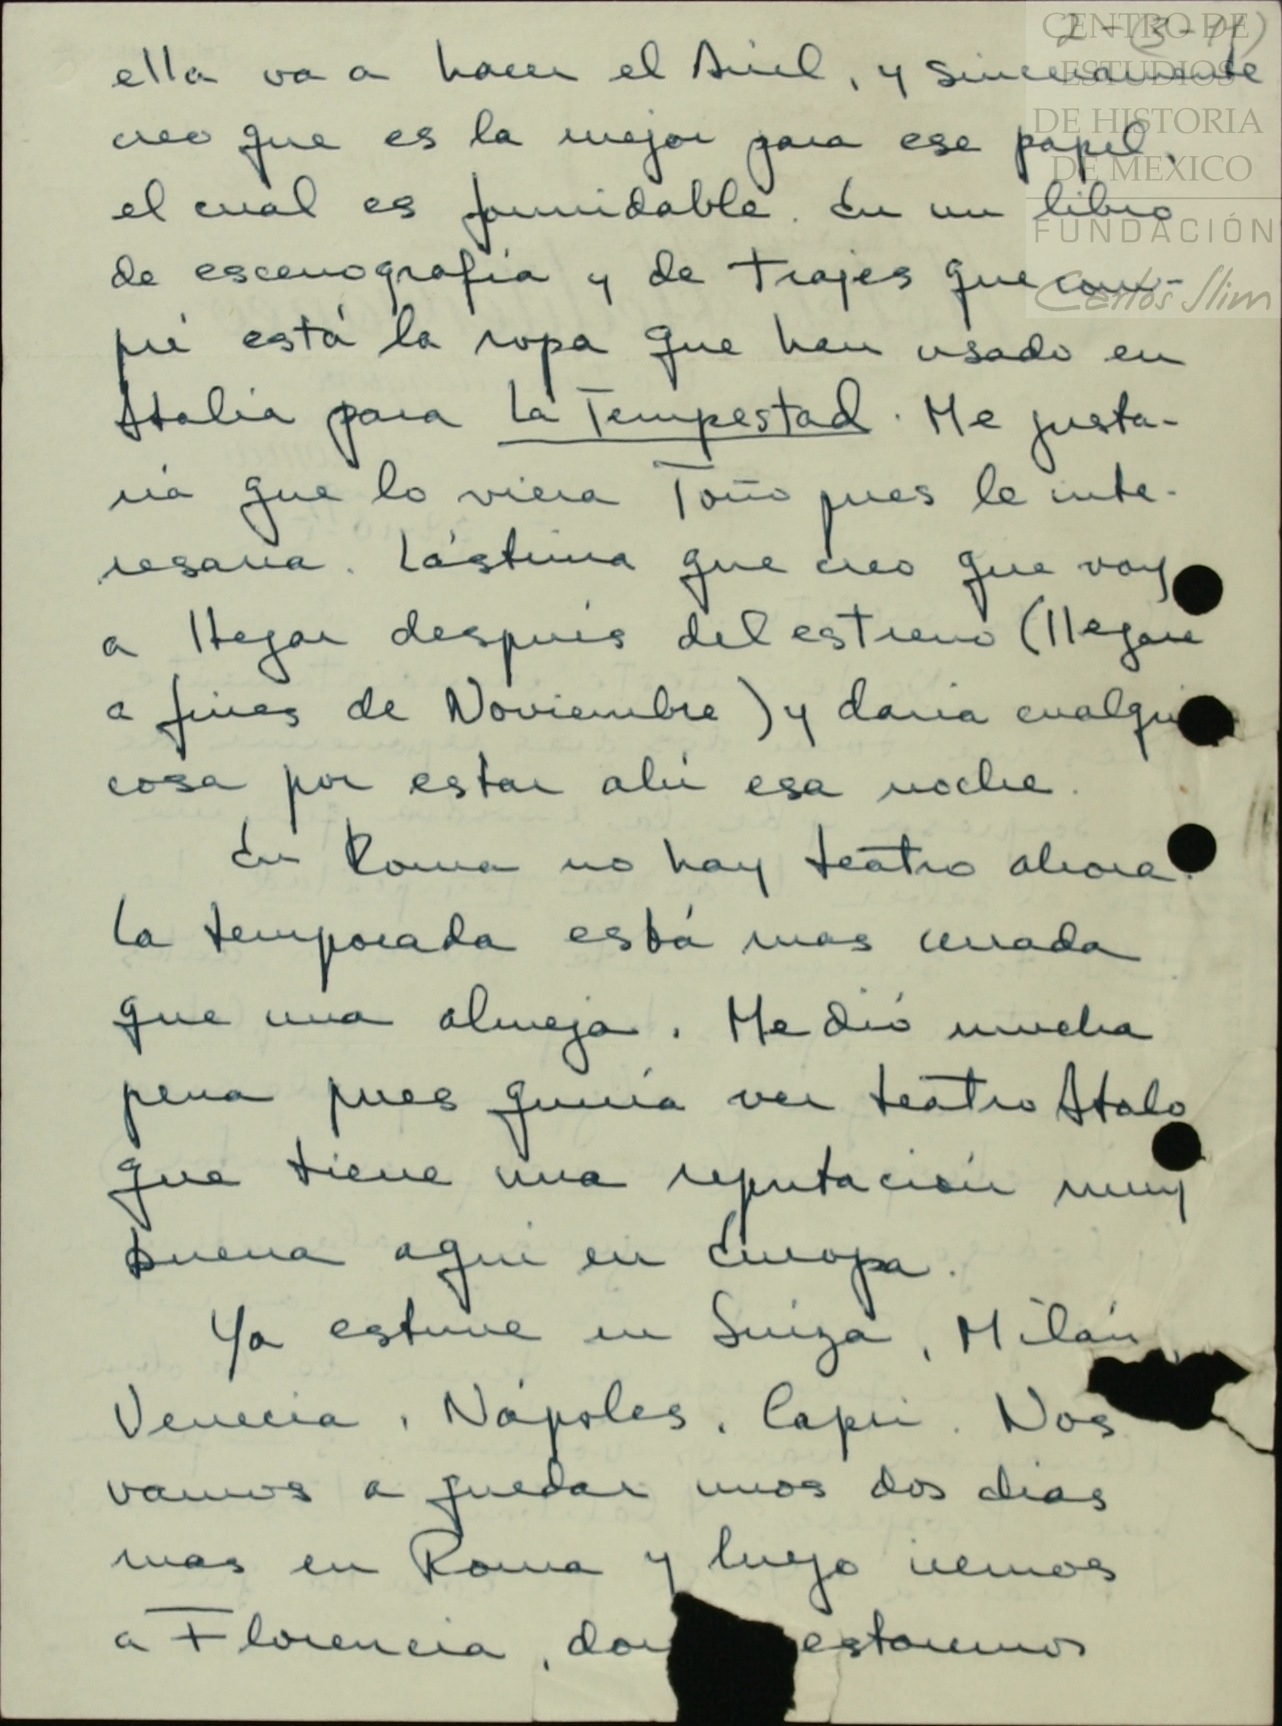 2-(3-4)
CENTRO DE
ESTUDIOS
DE HISTORIA
DE MEXICO
FUNDACIÓN
Carlos Slim
ella va a hacer el Ariel, y sinceramente
creo que es la mejor para ese papel,
el cual es formidable. En un libro
de escenografía y de trajes que com-
pré está la ropa que han usado en
Italia para La Tempestad. Me gusta-
ría que lo viera Toño pues le inte-
resaria. Lástima que creo que voy
a llegar después del estreno (llegaré
a fines de Noviembre) y daria cualqui
cosa por estar ahí esa noche.
En Roma no hay teatro ahora.
La temporada está mas cerrada
que una almeja. Me dió mucha
pena pues quería ver teatro Italo
que tiene una reputación muy
buena aqui en Europa.
Ya estuve en Suiza, Milán,
Venecia, Nápoles, Capri. Nos
vamos a quedar unos dos dias
mas en Roma y luego iremos
a Florencia, don estaremos